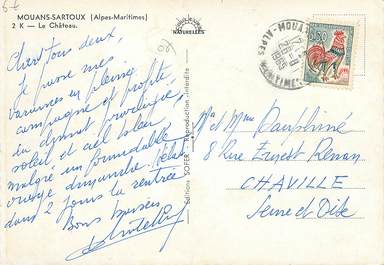 6 f
MOUANS-SARTOUX (Alpes-Maritimes)
2 K — Le Château.
COULEURS
NATURELLES
Chers tous deux,
je passe mes
vacances en pleine
campagne et profite
du climat provençal,
soleil et ciel bleu
malgré un formidable
orage dimanche. Hélas
dans 2 jours la rentrée
Bons baisers
Editions SOFER - Reproduction interdite
MOUANS-
ALPES MARITIMES
1965
0,30
M. et Mme Dauphiné
8 Rue Ernest Renan
CHAVILLE
Seine et Oise